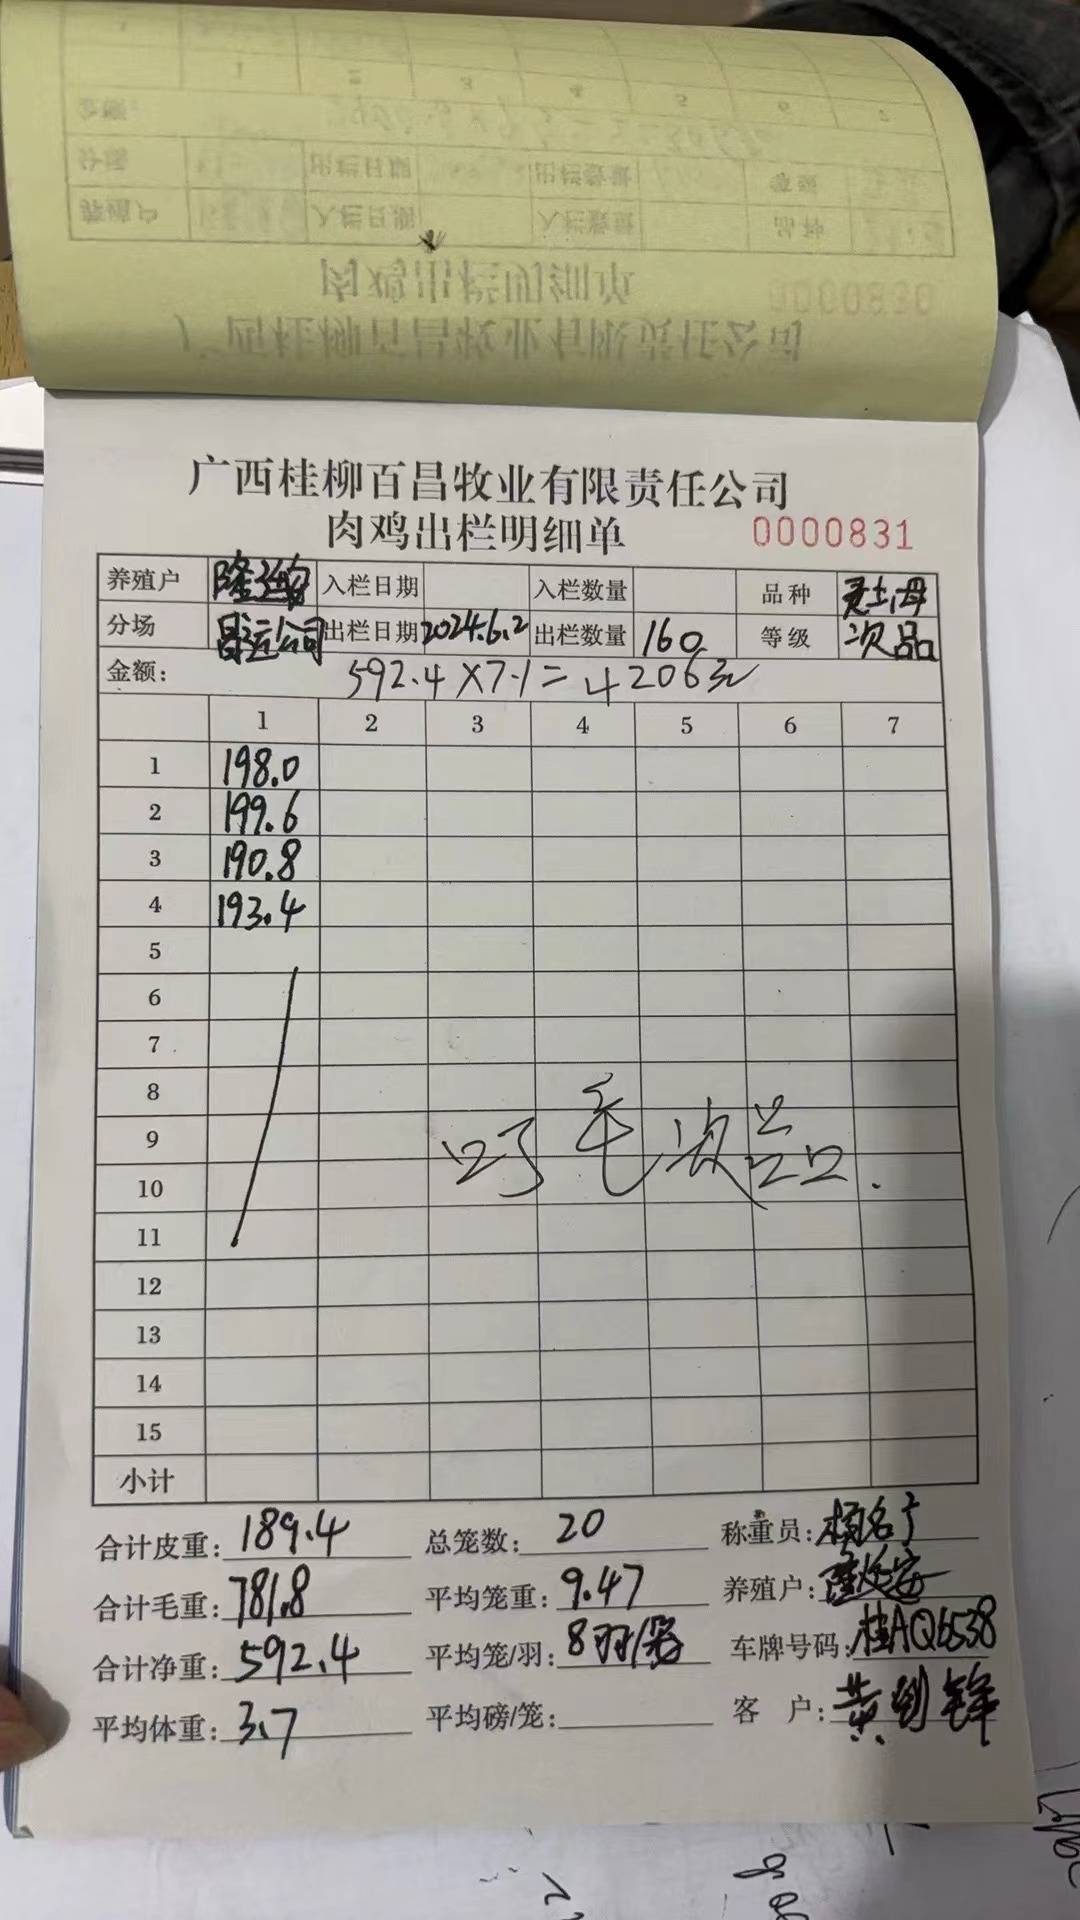 0000830
广西桂柳百昌牧业有限责任公司
肉鸡出栏明细单 0000831
养殖户 入栏日期 入栏数量 品种 土母
分场 昌运公司 出栏日期 2024.6.2 出栏数量 160 等级 次品
金额: 592.4×7.1=4206元
1 2 3 4 5 6 7
1 198.0
2 199.6
3 190.8
4 193.4
5
6
7
8
9 毛次品.
10
11
12
13
14
15
小计
合计皮重: 189.4 总笼数: 20 称重员:
合计毛重: 781.8 平均笼重: 9.47 养殖户:
合计净重: 592.4 平均笼/羽: 8羽/ 车牌号码: 桂AQ6538
平均体重: 3.7 平均磅/笼: 客户: 黄剑锋